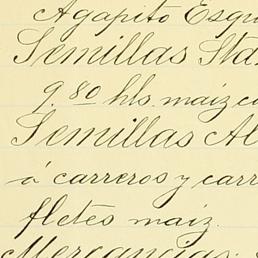 Agapito Esqu
Semillas Sta
9.80 hls. maiz c
Semillas Al
á carreros y carr
fletes maiz.
Mercancias: